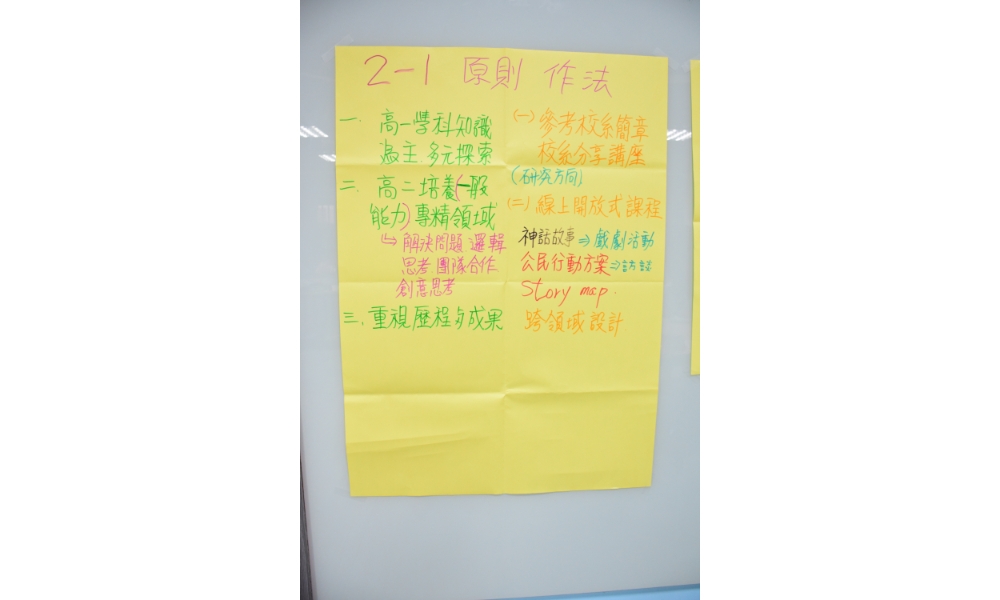 2-1 原則 作法
一. 高一學科知識
為主.多元探索
二. 高二培養(一般
能力)專精領域
↳解決問題 邏輯
思考 團隊合作
創意思考
三. 重視歷程與成果
(一) 參考校系簡章
校系分享講座
(研究方向)
(二) 線上開放式課程
神話故事⇒戲劇活動
公民行動方案⇒訪談
Story map.
跨領域設計